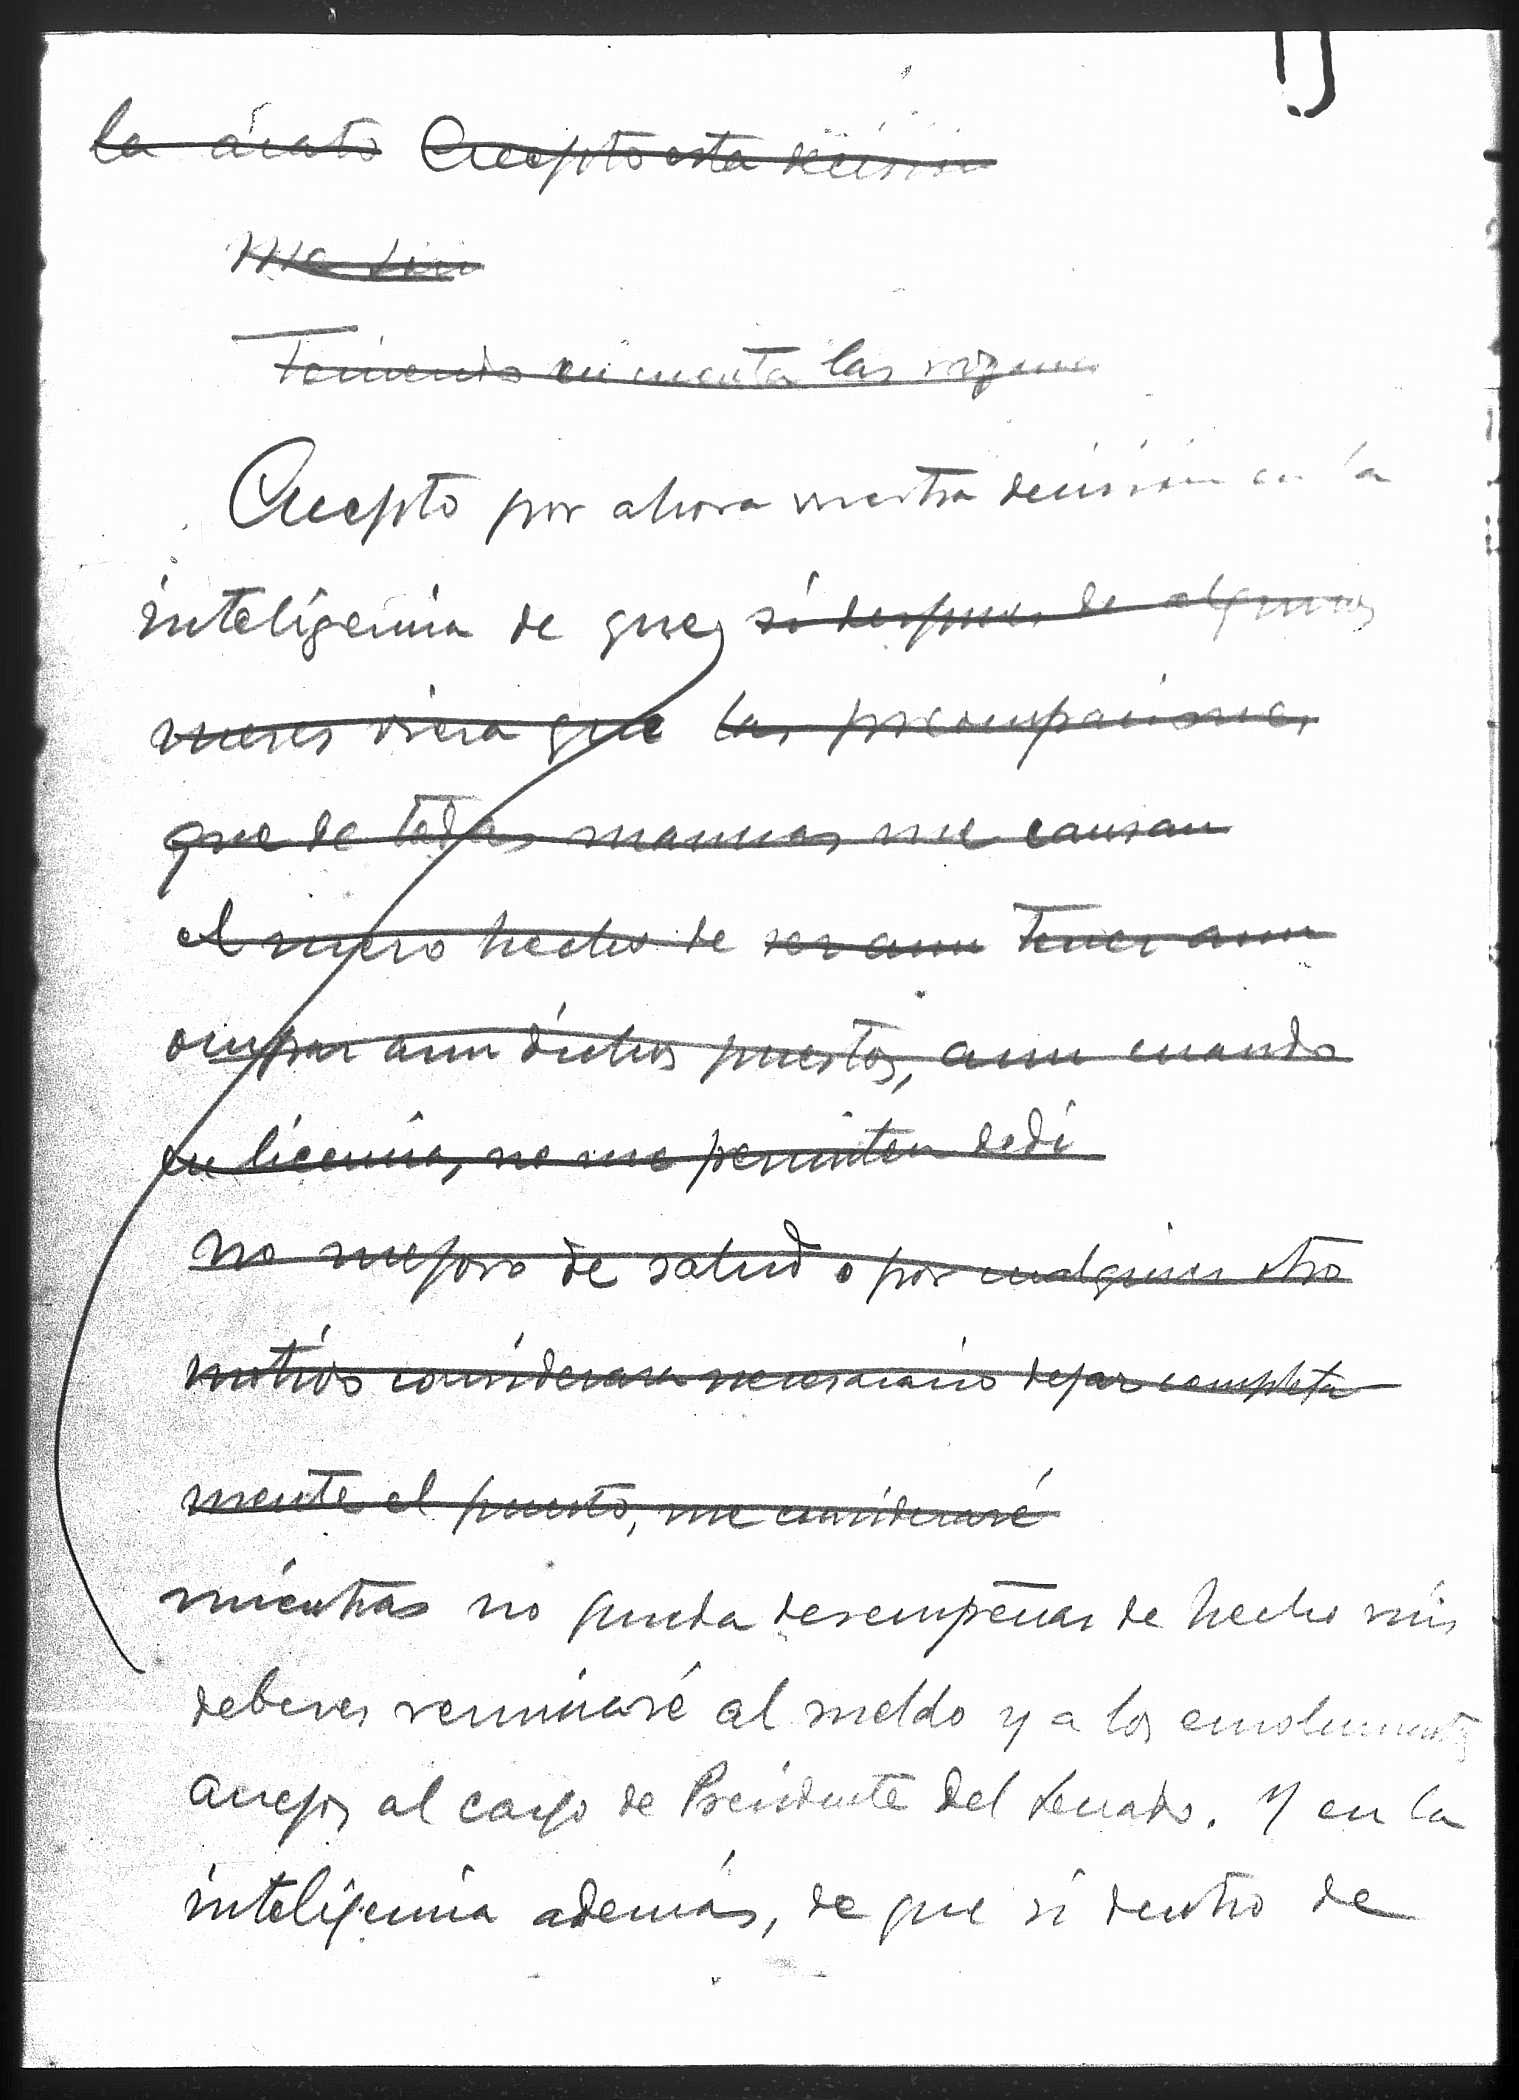 la acato Acepto esta decisión
Me
Teniendo en cuenta las razones
Acepto por ahora vuestra decisión en la
inteligencia de que, si despues de algunos
meses viera que las preocupaciones
que de todas maneras me causan
el mero hecho de ser aun tener aun
ocupar aun dichos puestos, aun cuando
en licencia, no me permiten dedi
no mejoro de salud o por cualquier otro
motivo considerara necesario dejar completa
mente el puesto, me consideraré
mientras no pueda desempeñar de hecho mis
deberes renunciaré al sueldo y a los emolumentos
anejos al cargo de Presidente del Senado. Y en la
inteligencia además, de que si dentro de